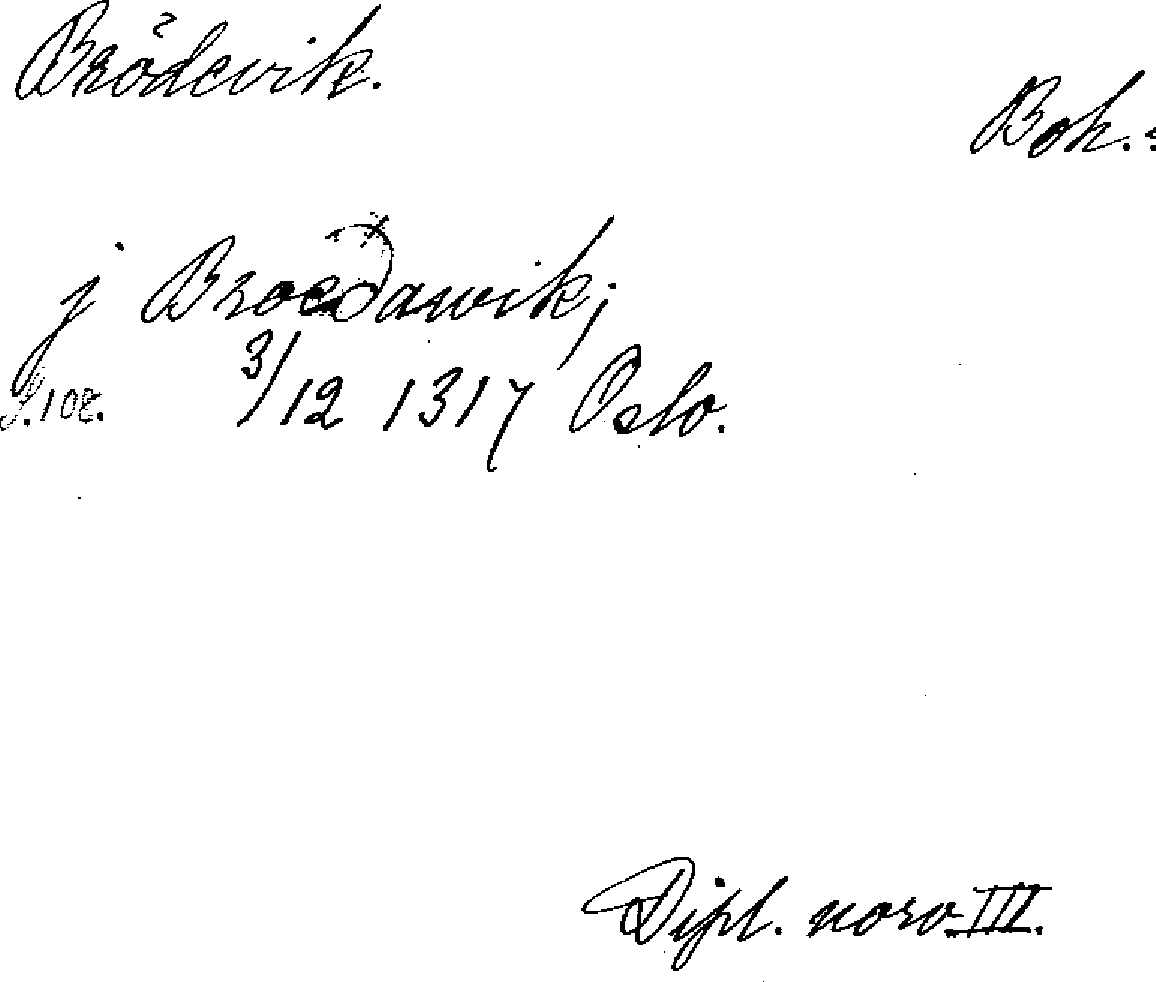 Brödevik.
Boh.:
j Broeðanvik;
S. 108. 3/12 1317 Oslo.
Dipl. norv. III.